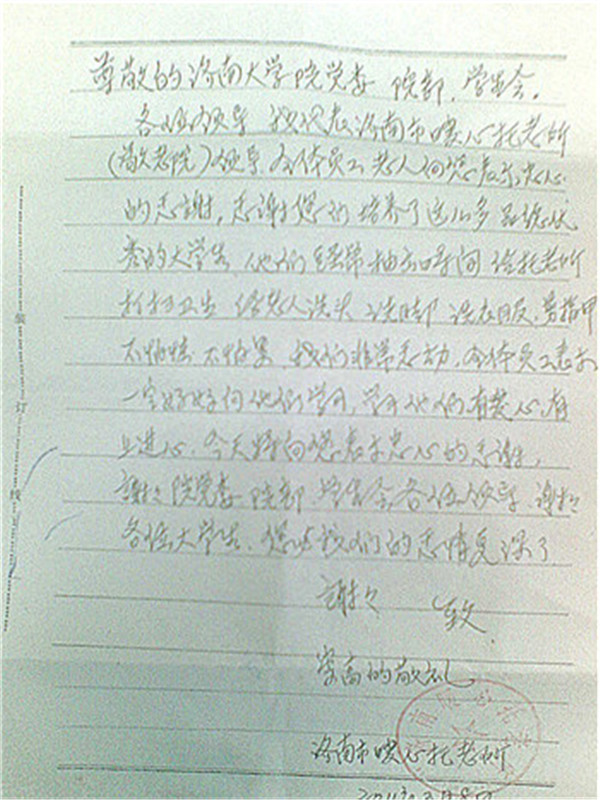 尊敬的济南大学院党委 院部、学生会。
各位领导 我代表济南市暖心托老所
(敬老院)领导 全体员工 老人向您表示衷心
的感谢，感谢您们培养了这么多品德优
秀的大学生，他们经常抽出时间给托老所
打扫卫生 给老人洗头 洗脚 洗衣服、剪指甲
不怕脏 不怕累，我们非常感动，全体员工表示
一定好好向他们学习，学习他们有爱心，有
上进心。今天特向您表示衷心的感谢，
谢谢院党委 院部 学生会各位领导。谢谢
各位大学生、您对我们的感情更深了
谢谢 致
崇高的敬礼
济南市暖心托老所
装 订 线